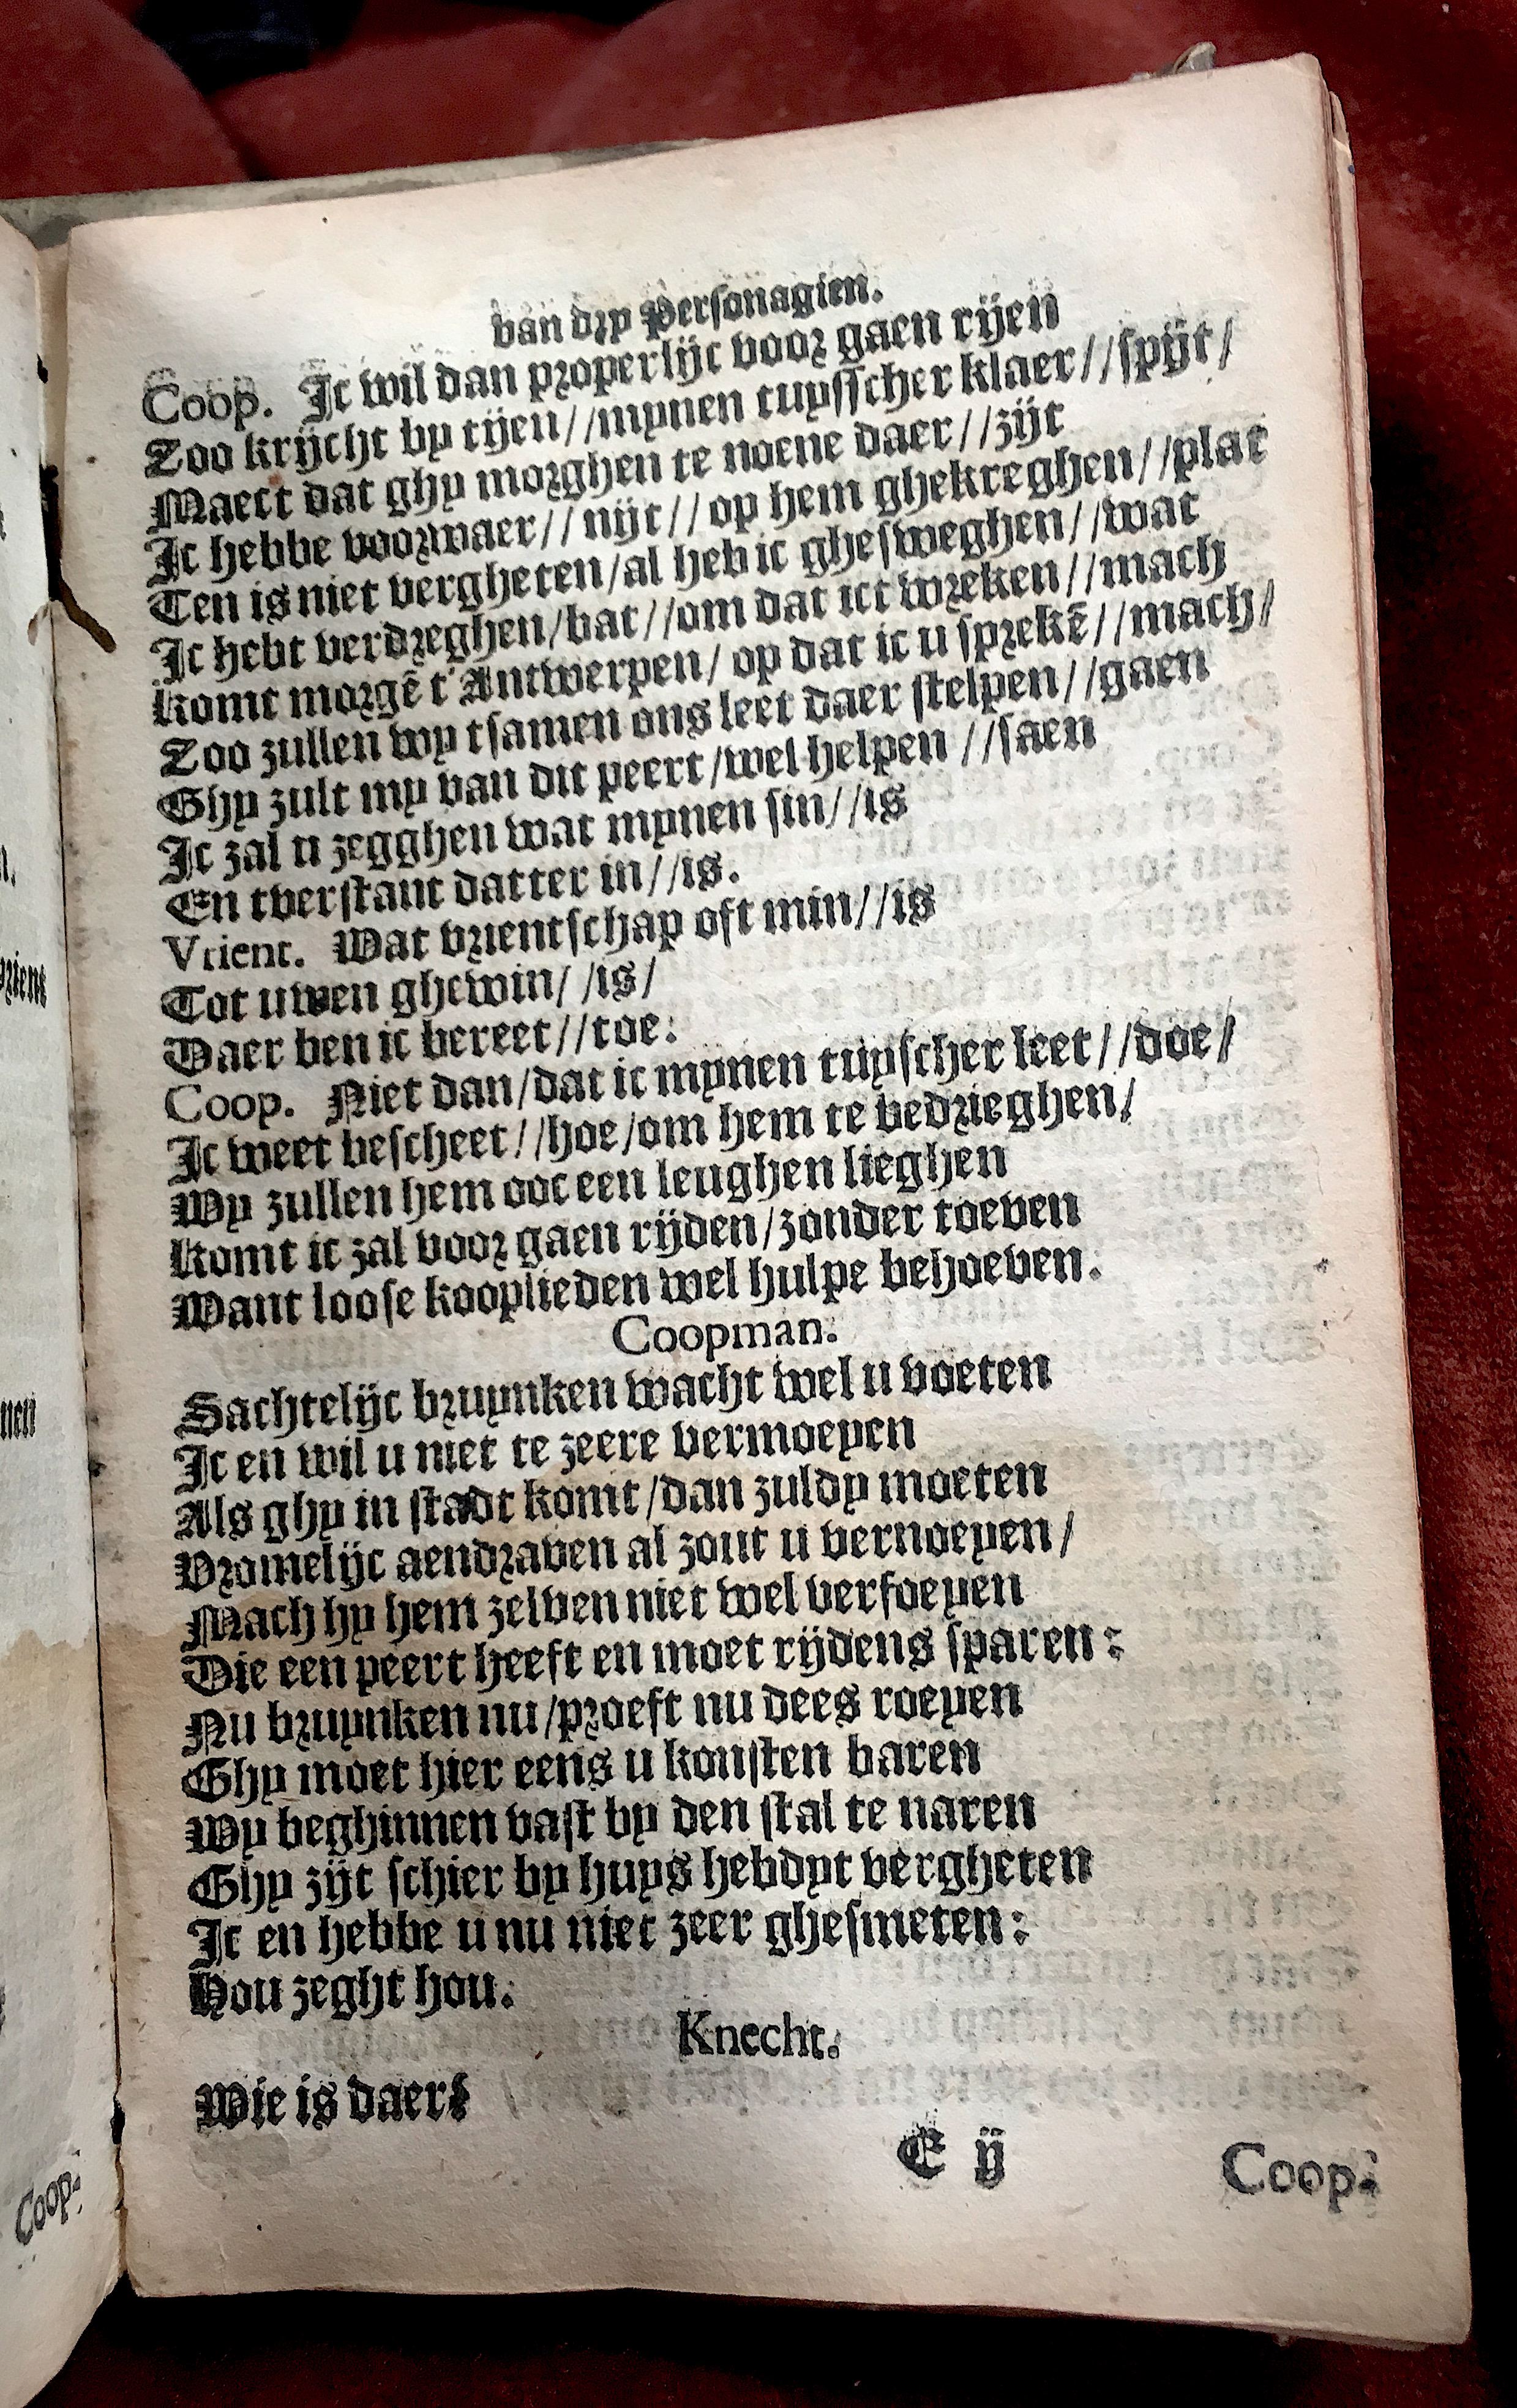 van dry Personagien.
Coop. Ic wil dan properlijc voor gaen rijen
Zoo krijcht by tijen//mynen tuysscher klaer//spijt/
Maect dat ghy morghen te noene daer//zijt
Ic hebbe voorwaer//nijt//op hem ghekreghen//plat
Ten is niet vergheten/al heb ic ghesweghen//wat
Ic hebt verdreghen/bat//om dat ict wreken//mach
Komt morgē t'Antwerpen/ op dat ic u sprekē//mach/
Zoo zullen wy tsamen ons leet daer stelpen//gaen
Ghy zult my van dit peert/wel helpen //saen
Ic zal u zegghen wat mynen sin//is
En tverstant datter in//is.
Vrient. Wat vrientschap oft min//is
Tot uwen ghewin/ /is/
Daer ben ic bereet//toe:
Coop. Niet dan/dat ic mynen tuyscher leet//doe/
Ic weet bescheet//hoe/om hem te bedrieghen/
Wy zullen hem ooc een leughen lieghen
Komt ic zal voor gaen rijden/zonder toeven
Want loose kooplieden wel hulpe behoeven.
Coopman.
Sachtelijc bruynken wacht wel u voeten
Ic en wil u niet te zeere vermoeyen
Als ghy in stadt komt/dan zuldy moeten
Vromelijc aendraven al zout u vernoeyen/
Mach hy hem zelven niet wel verfoeyen
Die een peert heeft en moet rijdens sparen:
Nu bruynken nu/proeft nu dees roeyen
Ghy moet hier eens u konsten baren
Wy beghinnen vast by den stal te naren
Ghy zijt schier by huys hebdyt vergheten
Ic en hebbe u nu niet zeer ghesmeten:
Hou zeght hou.
Knecht.
Wie is daer?
E ij
Coop.
vrient
nen
Coop.